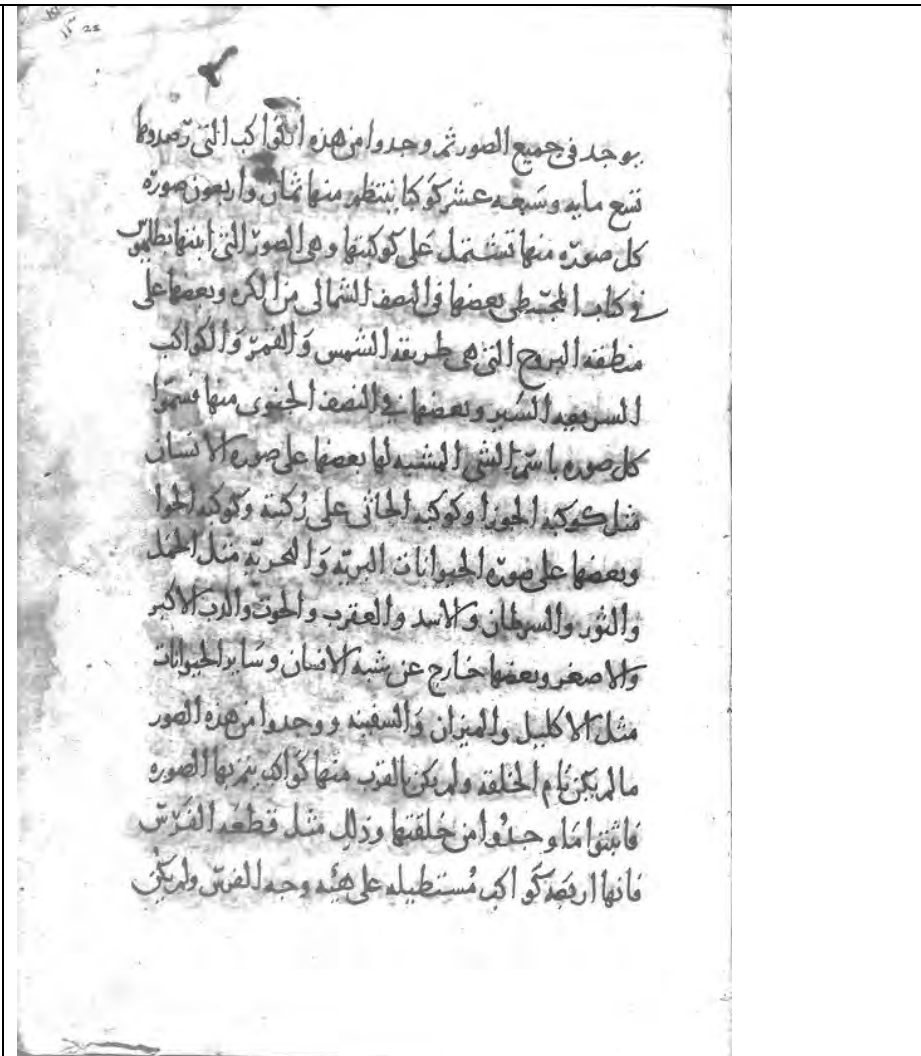 22
يوجد في جميع الصور ثم وجدوا من هذه الكواكب التي رصدوها
تسع مايه وسبعه عشر كوكبا ينتظم منها ثمان واربعون صوره
كل صوره منها تشتمل على كوكبتها وهي الصور التي اثبتها بطلميوس
في كتاب المجسطى بعضها في النصف الشمالى من الكره وبعضها على
منطقه البروج التي هى طريقه الشمس والقمر والكواكب
السريعه السير وبعضها في النصف الجنوبى منها فسموا
كل صوره باسم الشى المشبه لها بعضها على صوره الانسان
مثل كوكبه الجوزا وكوكبه الجاثى على ركبته وكوكبه الحوا
وبعضها على صوره الحيوانات البريه والبحريه مثل الحمل
والثور والسرطان والاسد والعقرب والحوت والدب الاكبر
والاصغر وبعضها خارج عن شبه الانسان وساير الحيوانات
مثل الاكليل والميزان والسفينه ووجدوا من هذه الصور
مالم يكن تام الخلقه ولم يكن بالقرب منها كواكب يتم بها الصوره
فاثبتوا ما وجدوا من خلقتها وذلك مثل قطعه الفرس
فانها اربعه كواكب مستطيله على هيئه وجه الفرس ولم يكن